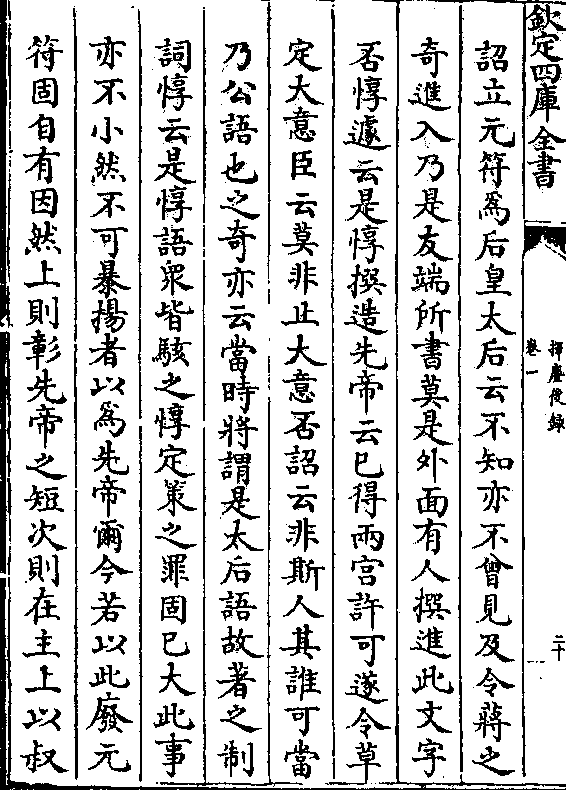 欽定四庫全書
揮麈後録
卷一
二十
詔立元符爲后皇太后云不知亦不曾見及令蔣之
奇進入乃是友端所書莫是外面有人撰進此文字
否惇遽云是惇撰造先帝云已得兩宮許可遂令草
定大意臣云莫非止大意否詔云非斯人其誰可當
乃公語也之奇亦云當時將謂是太后語故著之制
詞惇云是惇語衆皆駭之惇定策之罪固已大此事
亦不小然不可暴揚者以爲先帝爾今若以此廢元
符固自有因然上則彰先帝之短次則在主上以叔